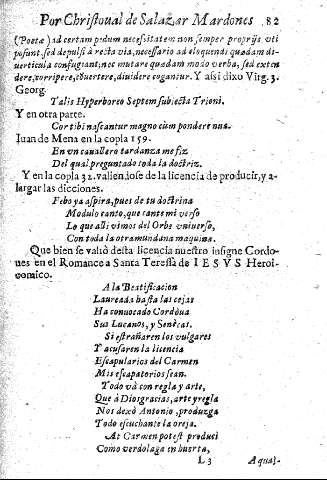 Por Christoual de Salazar Mardones 82
(Poetæ) ad certam pedum necessitatem non semper proprijs vti
posunt, sed depulsi à recta via, necessario ad eloquendi quædam di-
uerticula confugiant; nec mutare quædam modo verba, sed exten
dere, corripere, cōuertere, diuidere cogantur. Y aſsi dixo Virg. 3.
Georg.
Talis Hyperboreo Septem subiecta Trioni.
Y en otra parte.
Cor tibi nascantur magno cum pondere nua.
Iuan de Mena en la copla 159.
En vn cauallero tardanza me fiz
Del qual preguntado toda la doctriz.
Y en la copla 32. valiendose de la licencia de producir, y a-
largar las dicciones.
Febo ya aspira, pues de tu doctrina
Modulo canto, que cante mi verso
Lo que alli vimos del Orbe vniuerso,
Con toda la otra mundana maquina.
Que bien se valiò desta licencia nuestro insigne Cordo-
ues en el Romance a Santa Teressa de IESVS Heroi-
comico.
A la Beatificacion
Laureada hasta las cejas
Ha conuocado Cordoua
Sus Lucanos, y Senecas.
Si estrañaren los vulgares
Y acusaren la licencia
Escapularios del Carmen
Mis escapatorios sean.
Todo và con regla y arte,
Que à Dios gracias, arte y regla
Nos dexò Antonio, produzga
Todo escuchante la oreja.
At Carmen potest produci
Como verdolaga en huerta,
L 3 A qual-